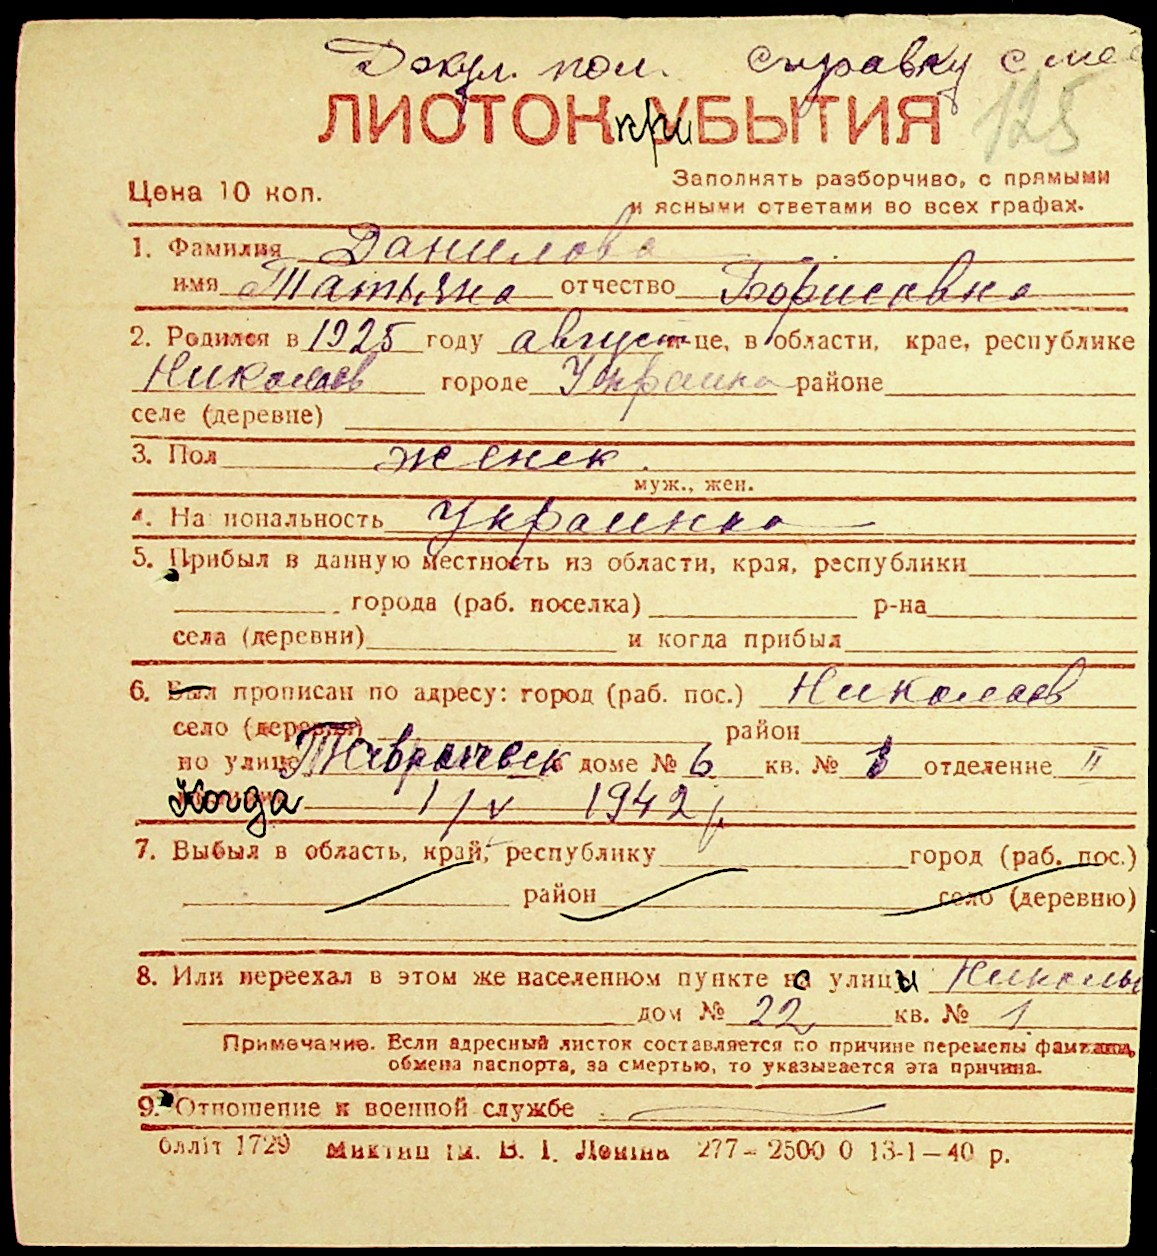 Докул. пол. справку с ме
ЛИСТОК при УБЫТИЯ 125
Цена 10 коп.
Заполнять разборчиво, с прямыми
и ясными ответами во всех графах.
1. Фамилия Данилова
имя Татьяна отчество Борисовна
2. Родился в 1925 году август це, в области, крае, республике
Николаев городе Украина районе
селе (деревне)
3. Пол женск.
муж., жен.
4. На иональность Украинка
5. Прибыл в данную местность из области, края, республики
города (раб. поселка) р-на
села (деревни) и когда прибыл
6. Был прописан по адресу: город (раб. пос.) Николаев
село (деревня) район
по улице Таврическ доме № 6 кв. № 1 отделение II
Когда 1/V 1942
7. Выбыл в область, край, республику город (раб. пос.)
район село (деревню)
8. Или переехал в этом же населенном пункте на с улицы Николь
дом № 22 кв. № 1
Примечание. Если адресный листок составляется по причине перемены фамилии,
обмена паспорта, за смертью, то указывается эта причина.
9. Отношение к военной службе
облліт 1729 Миктип ім. В. І. Леніна 277-2500 0 13-1-40 р.